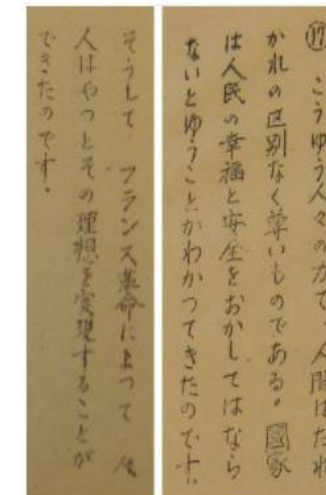 ⑰ こうゆう人々の力で、人間はだれ
かれの区別なく尊いものである。國家
は人民の幸福と安全をおかしてはなら
ないとゆうことがわかつてきたのです。
そうして、フランス革命によつて
人はやつとその理想を実現することが
できたのです。